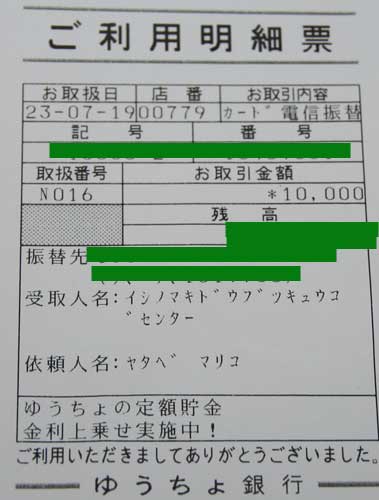 ご利用明細票
お取扱日 店番 お取引内容
23-07-19 00779 カード電信振替
記号 番号
取扱番号 お取引金額
N016 *10,000
残高
振替先
受取人名:イシノマキドウブツキュウゴ
センター
依頼人名:ヤタベ マリコ
ゆうちょの定額貯金
金利上乗せ実施中!
ご利用いただきましてありがとうございました。
ゆうちょ銀行